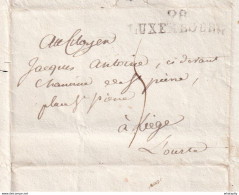 98
LUXEMBOURG
Au Citoyen
Jacques Antoine, ci devant
Chanoine de St pierre,
place St pierre
à Liège
L'ourte